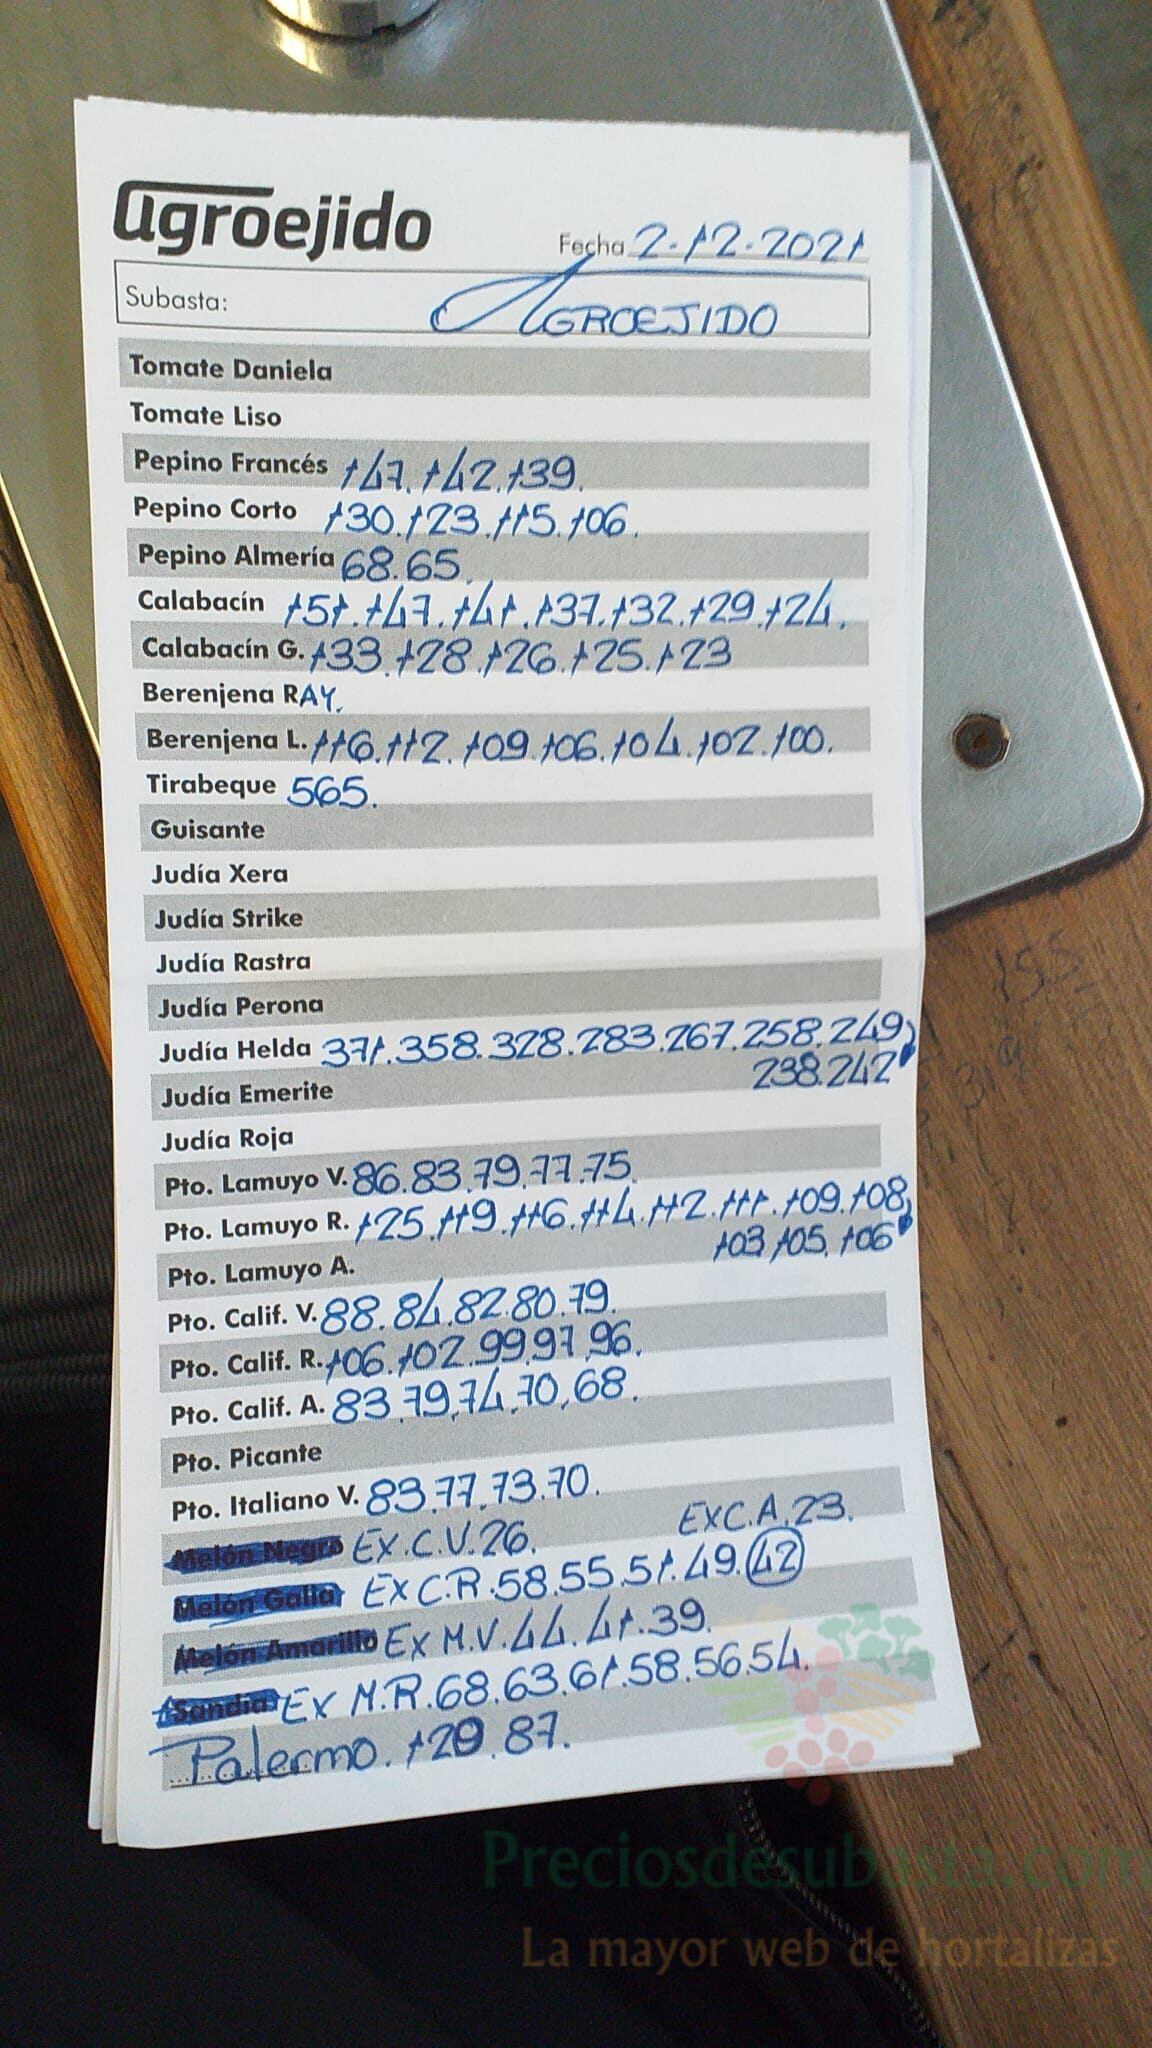 agroejido
Fecha 2-12-2021
Subasta: AGROEJIDO
Tomate Daniela
Tomate Liso
Pepino Francés 147.142.139.
Pepino Corto 130.123.115.106.
Pepino Almería 68.65.
Calabacín 151.147.141.137.132.129.124.
Calabacín G. 133.128.126.125.123
Berenjena RAY.
Berenjena L. 116.112.109.106.104.102.100.
Tirabeque 565.
Guisante
Judía Xera
Judía Strike
Judía Rastra
Judía Perona
Judía Helda 371.358.328.283.267.258.249,
238.242
Judía Emerite
Judía Roja
Pto. Lamuyo V. 86.83.79.77.75.
Pto. Lamuyo R. 125.119.116.114.112.111.109.108,
103.105.106
Pto. Lamuyo A.
Pto. Calif. V. 88.84.82.80.79.
Pto. Calif. R. 106.102.99.97.96.
Pto. Calif. A. 83.79.74.70.68.
Pto. Picante
Pto. Italiano V. 83.77.73.70.
Melón Negro EX.C.V.26. EXC.A.23.
Melón Galia EXC.R.58.55.51.49.42
Melón Amarillo EX M.V.44.41.39.
Sandía EX M.R.68.63.61.58.56.54.
Palermo. 129.87.
Preciosdesubasta.com
La mayor web de hortalizas